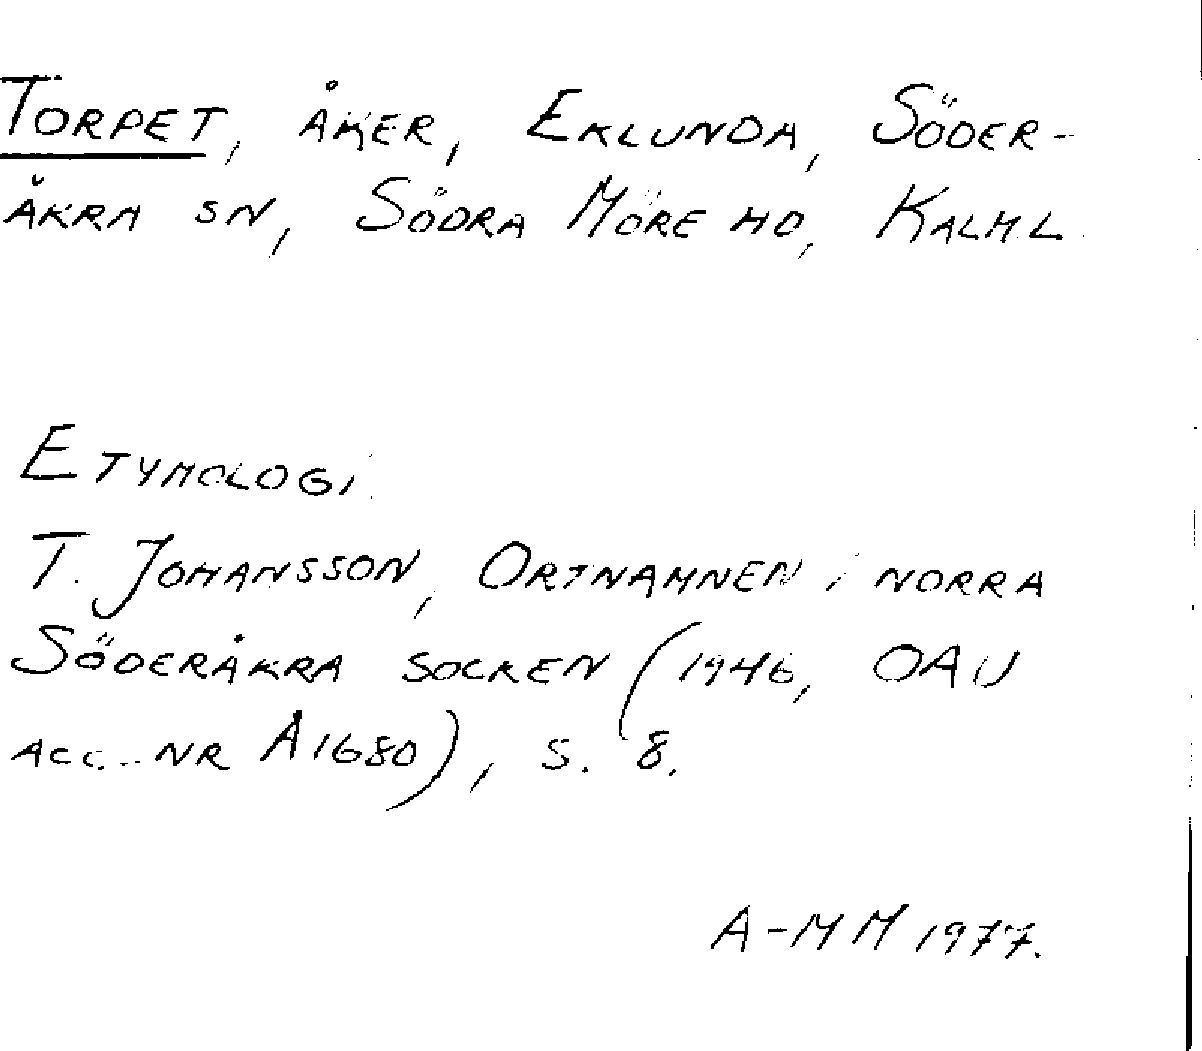 TORPET, ÅKER, EKLUNDA, SÖDER-
ÅKRA SN, SÖDRA MÖRE HD, KALM.L.
ETYMOLOGI.
T. JOHANSSON, ORTNAMNEN i NORRA
SÖDERÅKRA SOCKEN (1946, OAU
ACC. NR A1680), S. 8.
A-MM 1977.